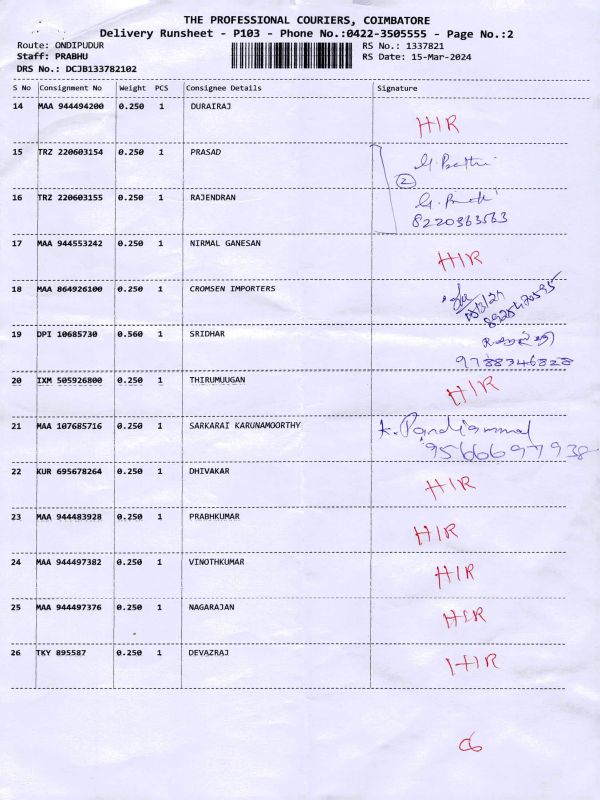 THE PROFESSIONAL COURIERS, COIMBATORE
Delivery Runsheet - P103 - Phone No.:0422-3505555 - Page No.:2
Route: ONDIPUDUR
RS No.: 1337821
Staff: PRABHU
RS Date: 15-Mar-2024
DRS No.: DCJB133782102
S No Consignment No Weight PCS Consignee Details Signature
14 MAA 944494200 0.250 1 DURAIRAJ HIR
15 TRZ 220603154 0.250 1 PRASAD
2
16 TRZ 220603155 0.250 1 RAJENDRAN
8220363563
17 MAA 944553242 0.250 1 NIRMAL GANESAN HIR
18 MAA 864926100 0.250 1 CROMSEN IMPORTERS
19 DPI 10685730 0.560 1 SRIDHAR
9788346828
20 IXM 505926800 0.250 1 THIRUMUUGAN HIR
21 MAA 107685716 0.250 1 SARKARAI KARUNAMOORTHY K. Pandiammal
9566697938
22 KUR 695678264 0.250 1 DHIVAKAR HIR
23 MAA 944483928 0.250 1 PRABHKUMAR HIR
24 MAA 944497382 0.250 1 VINOTHKUMAR HIR
25 MAA 944497376 0.250 1 NAGARAJAN HIR
26 TKY 895587 0.250 1 DEVAZRAJ HIR